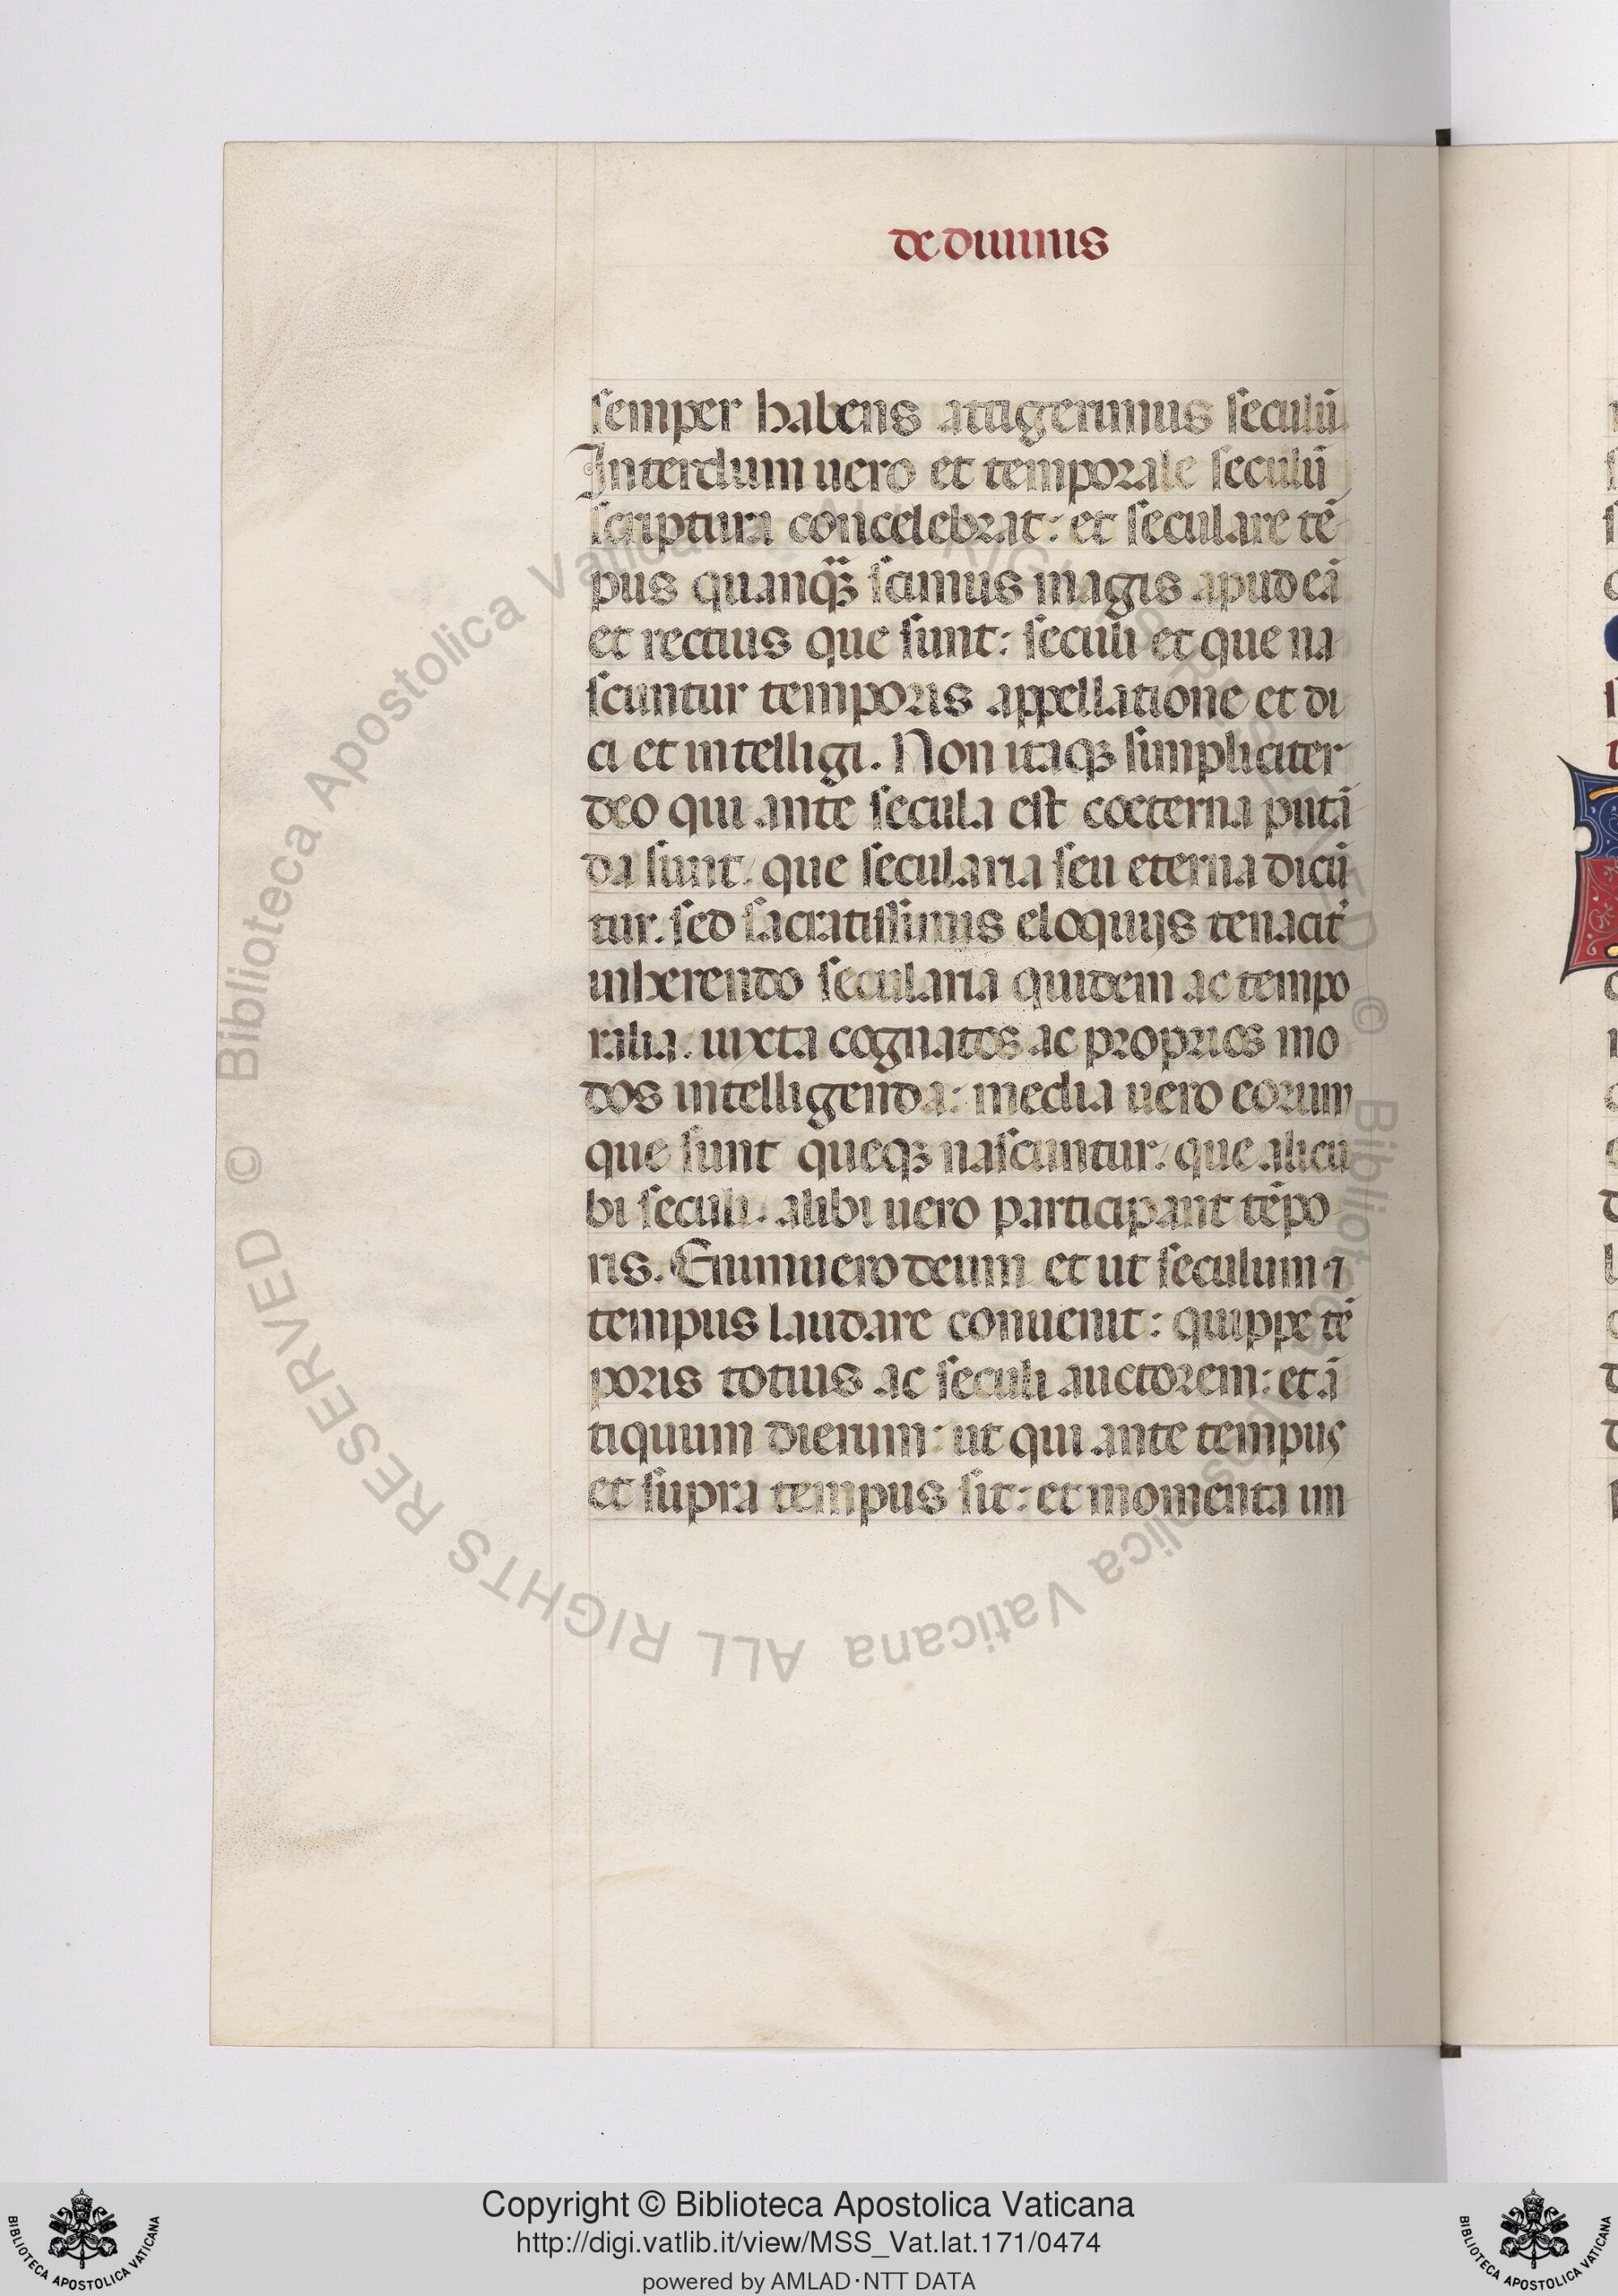 de diuinis
semper habens attigerimus seculū.
Interdum uero et temporale seculū
scriptura concelebrat: et seculare tē
pus quanqꝫ̄ scimus magis apud eā
et rectius que sunt: seculi et que na
scuntur temporis appellatione et di
ci et intelligi. Non itaqꝫ simpliciter
deo qui ante secula est coeterna putā
da sunt. que secularia seu eterna dicū
tur. sed sacratissimis eloquijs tenacit̃
inherendo secularia quidem ac tempo
ralia. iuxta cognatos ac proprios mo
dos intelligenda: media uero eorum
que sunt queqꝫ nascuntur. que alicu
bi seculi. alibi uero participant tēpo
ris. Enimuero deum et ut seculum ⁊
tempus laudare conuenit: quippe tē
poris totius ac seculi auctorem: et ā
tiquum dierum: ut qui ante tempus
et supra tempus sit: et momenta im
© Biblioteca Apostolica Vaticana ALL RIGHTS RESERVED
Copyright © Biblioteca Apostolica Vaticana
http://digi.vatlib.it/view/MSS_Vat.lat.171/0474
powered by AMLAD·NTT DATA
BIBLIOTECA APOSTOLICA VATICANA
BIBLIOTECA APOSTOLICA VATICANA